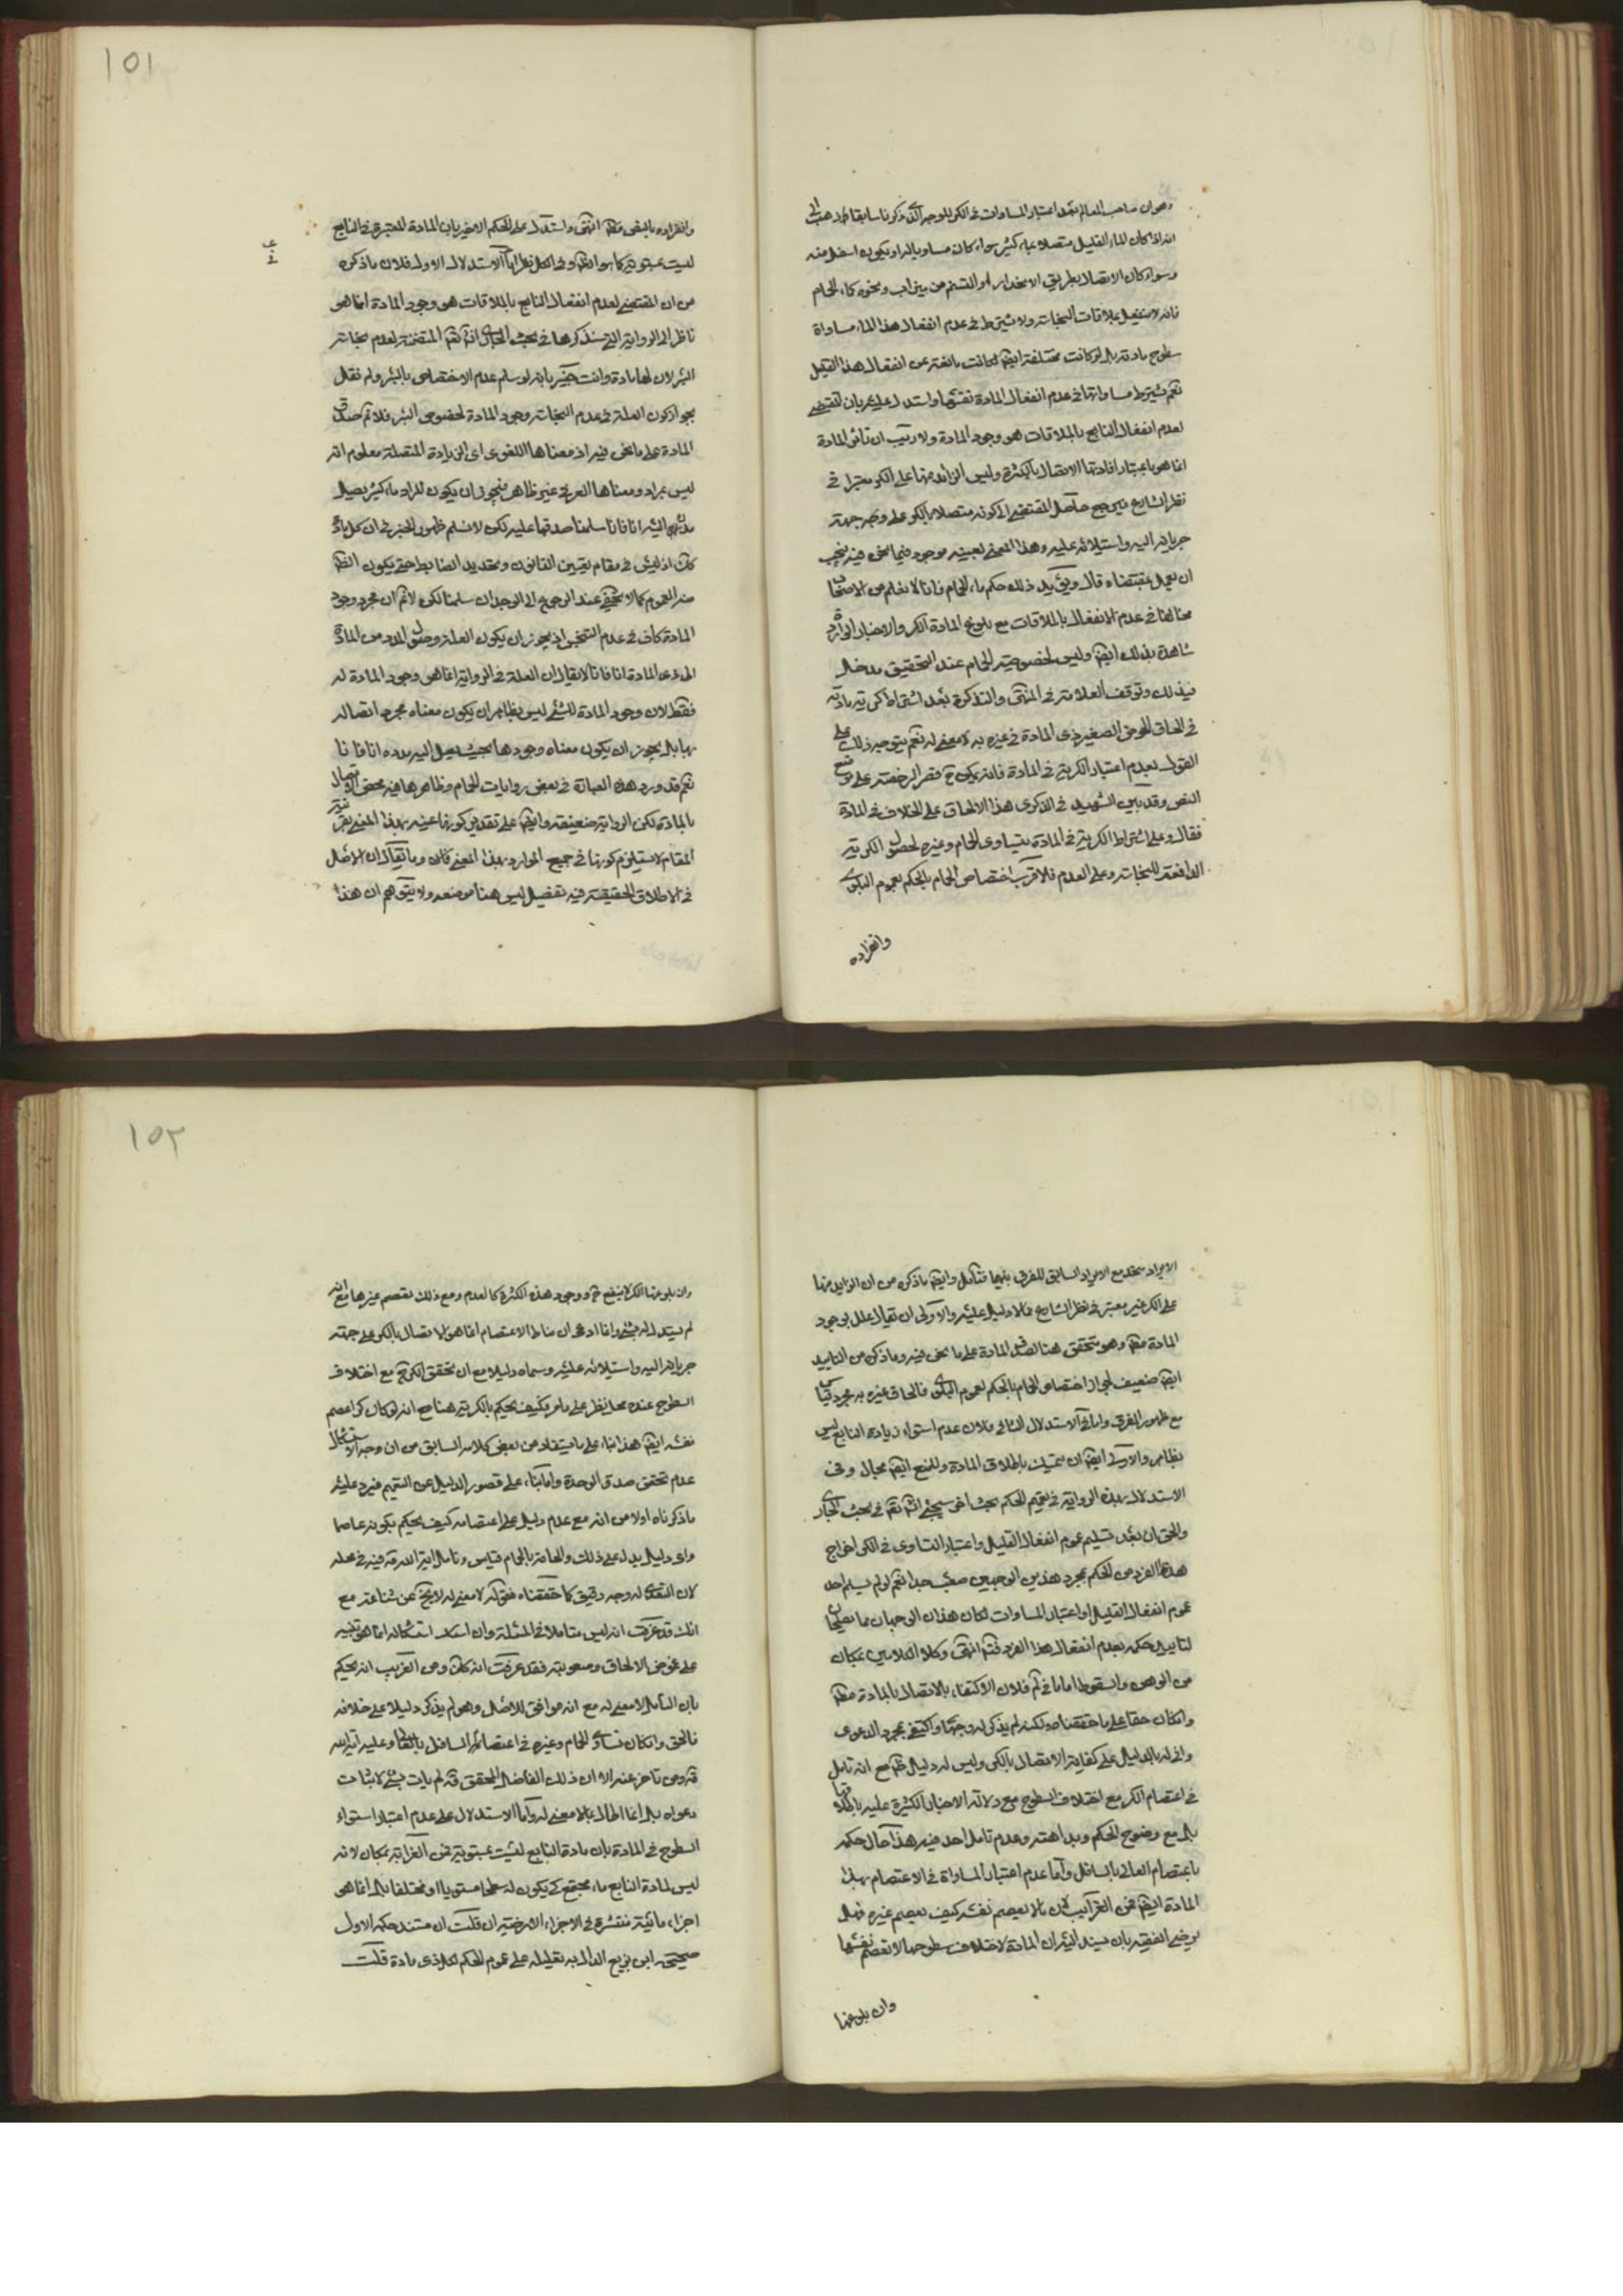 وهو ان صاحب المعالم بعد اعتبار المساوات في الكر للوجه الذي ذكرنا سابقا ذهب الى
انه اذا كان الماء القليل متصلا بماء كثير سواء كان مساويا له او يكون اسفل منه
وسواء كان الاتصال بطريق الانحدار او التسنم من ميزاب ونحوه كماء الحمام
فانه لا ينفعل بملاقات النجاسة ولا يشترط في عدم انفعال هذا الماء مساواة
سطوح مادته بل لو كانت مختلفة ايضا لكانت مانعة عن انفعال هذا القليل
نعم يشترط مساواتها في عدم انفعال المادة نفسها واستدل عليه بان المقتضي
لعدم انفعال النابع بالملاقات هو وجود المادة ولا ريب ان تأثير المادة
انما هو باعتبار افادتها الاتصال بالكثرة وليس الزائد منها على الكر معتبرا في
نظر الشارع فيرجع حاصل المقتضي الى كونه متصلا بالكر على وجه جهة
جريانه اليه واستيلائه عليه وهذا المعنى بعينه موجود فيما نحن فيه فيجب
ان يعمل بمقتضاه قال ويؤيد ذلك حكم ماء الحمام فانا لا نعلم من الاصحاب
مخالفا في عدم الانفعال بالملاقات مع بلوغ المادة الكر والاخبار الواردة
شاهدة بذلك ايضا وليس لخصوصية الحمام عند التحقيق مدخل
في ذلك وتوقف العلامة في المنتهى والتذكرة بعد اشتراط كرية مادته
في الحاق الحوض الصغير ذي المادة في غيره به لا معنى له نعم يتوجه ذلك على
القول بعدم اعتبار الكرية في المادة فانه يمكن ح قصر الرخصة على موضع
النص وقد بين الشهيد في الذكرى هذا الالحاق على الخلاف في المادة
فقال وعلى اشتراط الكرية في المادة يتساوى الحمام وغيره لحصول الكرية
الدافعة للنجاسة وعلى العدم فالاقرب اختصاص الحمام بالحكم لعموم البلوى
وانفراده
١٥١
وانفراده بالنص مظ انتهى واستدل على الحكم الاخير بان المادة المعتبرة في النابع
ليست بمستوية كما هو الظ وفي الكل نظر اما الاستدلال الاول فلان ما ذكره
من ان المقتضي لعدم انفعال النابع بالملاقات هو وجود المادة انما هو
ناظر الى الرواية التي سنذكرها في بحث الجاري انش تع المتضمنة لعدم نجاسة
البئر لان لها مادة وانت خبير بانه لو سلم عدم الاختصاص بالبئر ولم نقل
بجواز كون العلة في عدم النجاسة وجود المادة لخصوص البئر فلا نم صدق
المادة على ما نحن فيه اذ معناها اللغوي اي الزيادة المتصلة معلوم انه
ليس بمراد ومعناها العرفي غير ظاهر فيجوز ان يكون المراد ماء كثير يصل
مدده اليه انا فانا سلمنا صدقها عليه لكن لا نسلم ظهور الخبر في ان كل مادة
كك اذ ليس في مقام تعيين القانون وتحديد الضابط حتى يكون الظ
منه العموم كما لا يخفى عند الرجوع الى الوجدان سلمنا لكن لا نم ان مجرد وجود
المادة كاف في عدم التنجس اذ يجوز ان يكون العلة وصول المدد من المادة
الى ذي المادة انا فانا لا يقال ان العلة في الرواية انما هي وجود المادة له
فقط لان وجود المادة للشئ ليس بظاهر ان يكون معناه مجرد اتصاله
بها بل يجوز ان يكون معناه وجودها بحيث يصل اليه مدده انا فانا
نعم قد ورد هذه العبارة في بعض روايات الحمام وظاهرها فيه محض الاتصال
بالمادة لكن الرواية ضعيفة وايضا على تقدير كونها فيه بهذا المعنى بقرينة
المقام لا يستلزم كونها في جميع الموارد بهذا المعنى وما يقال ان الاصل
في الاطلاق الحقيقة فيه تفصيل ليس هنا موضعه ولا يتوهم ان هذا
الايراد متحد مع الايراد السابق للفرق بينهما فتأمل وايضا ما ذكره من ان الزايد منها
على الكر غير معتبر في نظر الشارع فلا دليل عليه والاولى ان يقال علل بوجود
المادة مظ وهو متحقق هنا لصدق المادة على ما نحن فيه وما ذكره من التاييد
ايضا ضعيف لجواز اختصاص الحمام بالحكم لعموم البلوى فالحاق غيره به مجرد قياس
مع ظهور الفرق واما الاستدلال الثاني فلان عدم استواء زيادة النابع ليس
بظاهر والاولى ايضا ان يتمسك باطلاق المادة وللمنع ايضا مجال وفي
الاستدلال بهذه الرواية في تعميم الحكم بحث اخر سيجئ انش تع في بحث الجاري
والحق ان بعد تسليم عموم انفعال القليل واعتبار التساوي في الكر اخراج
هذا الفرد من الحكم بمجرد هذين الوجهين صعب جدا نعم لو لم يسلم احد
عموم انفعال القليل او اعتبار المساوات لكان هذان الوجهان مما يصلحان
لتاييد حكمه بعدم انفعال هذا الفرد فتم انتهى وكلا الكلامين بمكان
من الوهن والسقوط اما ما في لم فلان الاكتفاء بالاتصال بالمادة مظ
وان كان حقا على ما حققناه ولكنه لم يذكر له وجها واكتفى بمجرد الدعوى
واني له بالدليل على كفاية الاتصال بالكر وليس له دليل ظ مع انه تامل
في اعتصام الكر مع اختلاف السطوح مع دلالة الاخبار الكثيرة عليه باطلاقها
بل مع وضوح الحكم وبداهته وعدم تامل احد فيه هذا حال حكمه
باعتصام العالي بالسافل واما عدم اعتبار المساواة في الاعتصام بهذه
المادة ايضا فمن الغرائب لان ما لا يعصم نفسه كيف يعصم غيره فهل
يرضى الفقيه بان يسند اليه ان المادة لاختلاف سطوحها لا تعصم نفسها
وان بلوغها
١٥٢
وان بلوغها الكر لا ينفع ح ووجود هذه الكثرة كالعدم ومع ذلك تعصم غيرها مع انه
لم يستدل له بشئ وانما ادعى ان مناط الاعتصام انما هو الاتصال بالكر على جهة
جريانه اليه واستيلائه عليه وسماه دليلا مع ان تحقق الكر ح مع اختلاف
السطوح عنده محل نظر على ما مر فكيف يحكم بالكرية هنا مع انه لو كان كرا عصم
نفسه ايضا هذا بناء على ما يستفاد من بعض كلامه السابق من ان وجه الاستشكال
عدم تحقق صدق الوحدة واما بناء على قصور الدليل عن التعميم فيرد عليه
ما ذكرناه اولا من انه مع عدم دليل على اعتصامه كيف يحكم بكونه عاصما
واي دليل يدل على ذلك والحاقه بالحمام قياس وتامل اية الله قه فيه في محله
لان التعدي له وجه دقيق كما حققناه فقوله لا معنى له لا يخ عن شناعة مع
انك قد عرفت انه ليس متاملا في المسئلة وان استشكاله انما هو تنبيه
على غموض الالحاق وصعوبته فقد عرفت انه كك ومن الغريب انه يحكم
بان التامل لا معنى له مع انه موافق للاصل وهو لم يذكر دليلا على خلافه
فالحق وان كان تساوي الحمام وغيره في اعتصام السافل بالعالي وعليه اية الله
قه ومن تاخر عنه الا ان ذلك الفاضل المحقق قه لم يات بشئ لاثبات
دعواه بل انما اطال بما لا معنى له واما الاستدلال على عدم اعتبار استواء
السطوح في المادة بان مادة النابع ليست بمستوية فمن الغرابة بمكان لانه
ليس لمادة النابع ماء مجتمع كي يكون له سطحا مستويا او مختلفا بل انما هو
اجزاء مائية منتشرة في الاجزاء الارضية ان قلت ان مستند حكمه الاول
صحيحة ابن بزيع الدال به تعليله على عموم الحكم لكل ذي مادة قلت